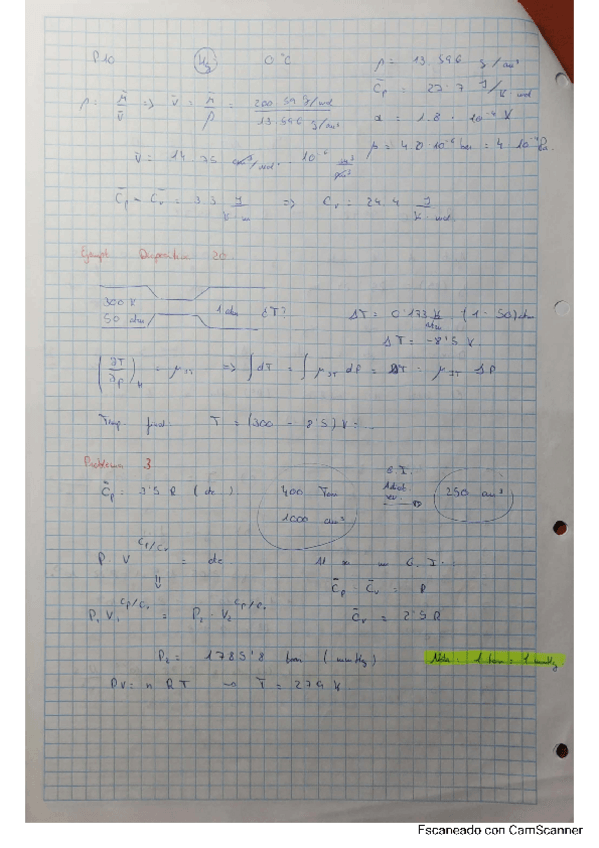 P10 Hg 0°C ρ = 13.596 g/cm³
C̄p = 27.7 J/K mol
ρ = M̄/V̄ ⇒ V̄ = M̄/ρ = 200.59 g/mol / 13.596 g/cm³
α = 1.8 · 10⁻⁴ K
V̄ = 14.75 cm³/mol · 10⁻⁶ m³/cm³
C̄p - C̄v = 3.3 J/K·m ⇒ Cv = 24.4 J/K·mol
Ejemplo Diapositiva 20
300 K
50 atm 1 atm ΔT?
ΔT = 0'173 K/atm (1 - 50) atm
ΔT = -8'5 K.
(∂T/∂p)H = μJT ⇒ ∫dT = ∫μJT dP = ΔT = μJT ΔP
Temp. final: T = (300 - 8'5) K = ...
Problema 3
C̄p = 3'5 R (dc) 400 Torr G.I. 250 cm³
1000 cm³
P V^(Cp/Cv) = dc. Al ser un G.I.:
⇓
C̄p - C̄v = R
P₁ V₁^(Cp/Cv) = P₂ · V₂^(Cp/Cv) C̄v = 2'5 R
P₂ = 1785'8 torr (mmHg) Nota: 1 torr = 1 mmHg
PV = n R T T = 279 K
Escaneado con CamScanner